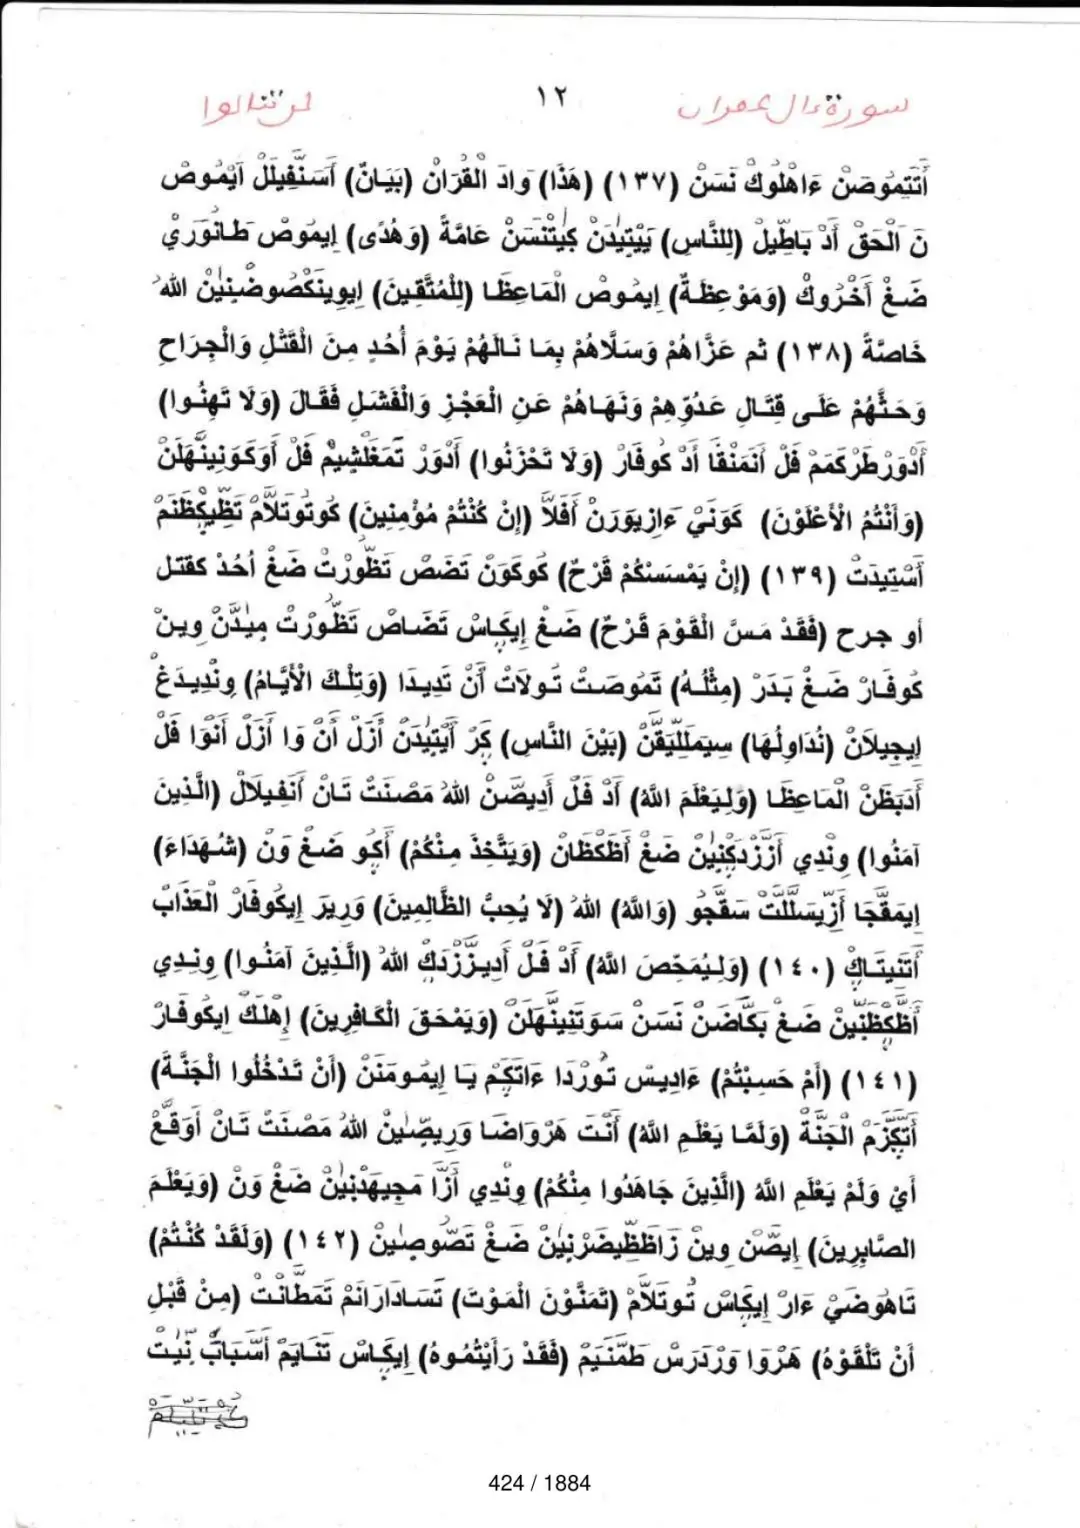 سورة ءال عمران ١٢ لن تنالوا
أَتَتِمُوصَنْ ءَاهْلُوكْ نَسَنْ (١٣٧) (هَذَا) وَادَ الْقُرَانْ (بَيَانٌ) أَسَنَّفِيلَلْ آيْمُوصْ
نَ الْحَقْ أَدْ بَاطِيلْ (لِلنَّاسِ) يَيْتِيدَنْ كَيْتْنَسَنْ عَامَّةً (وَهُدًى) إِيمُوصْ طَانُورِيْ
ضَغْ أَخْرُوكْ (وَمَوْعِظَةٌ) إِيمُوصْ الْمَاعِظَا (لِلْمُتَّقِينَ) إِيوِينَكْصُوضْنِيْنْ اللهْ
خَاصَّةً (١٣٨) ثم عَزَّاهُمْ وَسَلَّاهُمْ بِمَا نَالَهُمْ يَوْمَ أُحُدٍ مِنَ الْقَتْلِ وَالْجِرَاحِ
وَحَثَّهُمْ عَلَى قِتَالِ عَدُوِّهِمْ وَنَهَاهُمْ عَنِ الْعَجْزِ وَالْفَشَلِ فَقَالَ (وَلَا تَهِنُوا)
أَدْوَرْ طَرْكَمَمْ فَلْ أَنَمَنْقَا أَدْ كُوفَارْ (وَلَا تَحْزَنُوا) أَدْوَرْ تَمَغَلْشِيمْ فَلْ أَوَكَوَنِينَّهَلَنْ
(وَأَنْتُمُ الْأَعْلَوْنَ) كَوَنَيْ ءَازِيوَرَنْ أَفَلاَّ (إِنْ كُنْتُمْ مُؤْمِنِينَ) كُوتُوتَلاَّمْ تَظِّيكْظَنَمْ
أَسْتِيدَتْ (١٣٩) (إِنْ يَمْسَسْكُمْ قَرْحٌ) كُوكَوَنْ تَضَصْ تَظُّورْتْ ضَغْ أُحُدْ كقتل
أو جرح (فَقَدْ مَسَّ الْقَوْمَ قَرْحٌ) ضَغْ إِيكَاسْ تَضَاصْ تَظُّورْتْ مِيدَّنْ وِينْ
كُوفَارْ ضَغْ بَدَرْ (مِثْلُهُ) تَمُوصَتْ تُولَاتْ أَنْ تَدِيدَا (وَتِلْكَ الْأَيَّامُ) وِنْدِيدَغْ
إِيجِيلَانْ (نُدَاوِلُهَا) سِيمَلَلِّيَقَّنْ (بَيْنَ النَّاسِ) كَرْ أَيْتِيدَنْ أَزَلْ أَنْ وَا أَزَلْ أَنْوَا فَلْ
أَدَبَظَنْ الْمَاعِظَا (وَلِيَعْلَمَ اللَّهُ) أَدْ فَلْ أَدِيصَّنْ اللهُ مَصْنَتْ تَانْ أَنْفِيلَالْ (الَّذِينَ
آمَنُوا) وِنْدِي أَزَّزْدَكْنِيْنْ ضَغْ أَظَكْظَانْ (وَيَتَّخِذَ مِنْكُمْ) أَكُو ضَغْ وَنْ (شُهَدَاءَ)
إِيمَقَّجَا أَزِّيسَلَّلَتْ سَقَّجُو (وَاللَّهُ) اللهُ (لَا يُحِبُّ الظَّالِمِينَ) وَرِيرَ إِيكُوفَارْ الْعَذَابْ
أَتَنِيتَاكْ (١٤٠) (وَلِيُمَحِّصَ اللَّهُ) أَدْ فَلْ أَدِيزَّزْدَكْ اللهُ (الَّذِينَ آمَنُوا) وِنْدِي
أَظَّكْظَنِيْنْ ضَغْ بَكَّاضَنْ نَسَنْ سَوَتَنِينَّهَلَنْ (وَيَمْحَقَ الْكَافِرِينَ) إِهْلَكْ إِيكُوفَارْ
(١٤١) (أَمْ حَسِبْتُمْ) ءَادِيسْ تُورْدَا ءَاتَكَمْ يَا إِيمُومَنَنْ (أَنْ تَدْخُلُوا الْجَنَّةَ)
أَتَكَّزَمْ الْجَنَّةْ (وَلَمَّا يَعْلَمِ اللَّهُ) أَنْتَ هَرْوَاضَا وَرِيصِّيْنْ اللهُ مَصْنَتْ تَانْ أَوَقَّعْ
أَيْ وَلَمْ يَعْلَمِ اللَّهُ (الَّذِينَ جَاهَدُوا مِنْكُمْ) وِنْدِي أَزَّا مَجِيهَدْنِيْنْ ضَغْ وَنْ (وَيَعْلَمَ
الصَّابِرِينَ) إِيصَّنْ وِينْ زَاظَظِّيضَرْنِيْنْ ضَغْ تَصُّوصِيْنْ (١٤٢) (وَلَقَدْ كُنْتُمْ)
تَاهُوضَيْ ءَارْ إِيكَاسْ تُوتَلَامْ (تَمَنَّوْنَ الْمَوْتَ) تَسَادَارَانَمْ تَمَطَّانْتْ (مِنْ قَبْلِ
أَنْ تَلْقَوْهُ) هَرْوَا وَرْدَرَسْ طَمَّنَيَمْ (فَقَدْ رَأَيْتُمُوهُ) إِيكَاسْ تَنَايَمْ أَسَّبَابْ نِّيتْ
424 / 1884